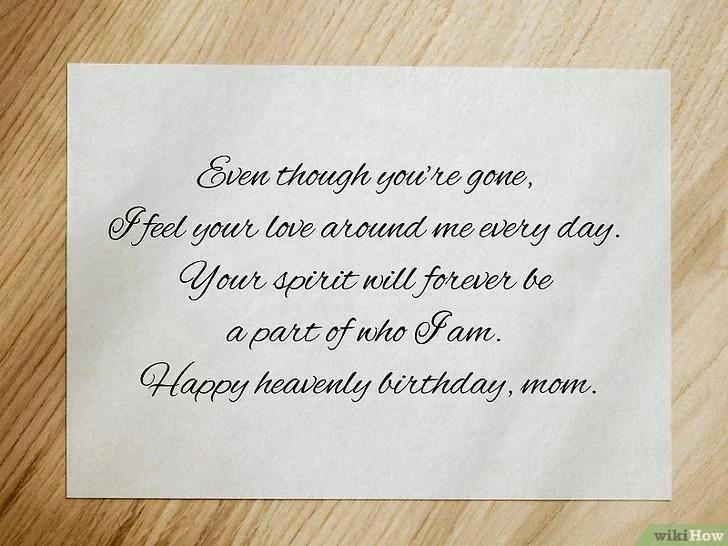 Even though you're gone,
I feel your love around me every day.
Your spirit will forever be
a part of who I am.
Happy heavenly birthday, mom.
wikiHow